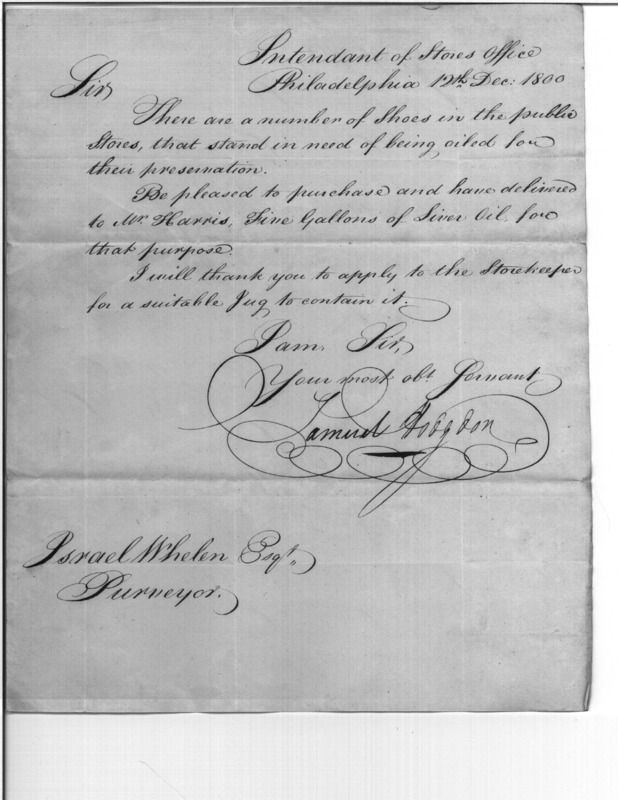 Intendant of Stores Office
Philadelphia 12th Dec: 1800
Sir
There are a number of Shoes in the public
Stores, that stand in need of being oiled for
their preservation.
Be pleased to purchase and have delivered
to Mr. Harris, Five Gallons of Liver Oil, for
that purpose.
I will thank you to apply to the Storekeeper
for a suitable Jug to contain it.
I am, Sir,
Your most obt. Servant
Samuel Hodgdon
Israel Whelen Esqr.,
Purveyor.